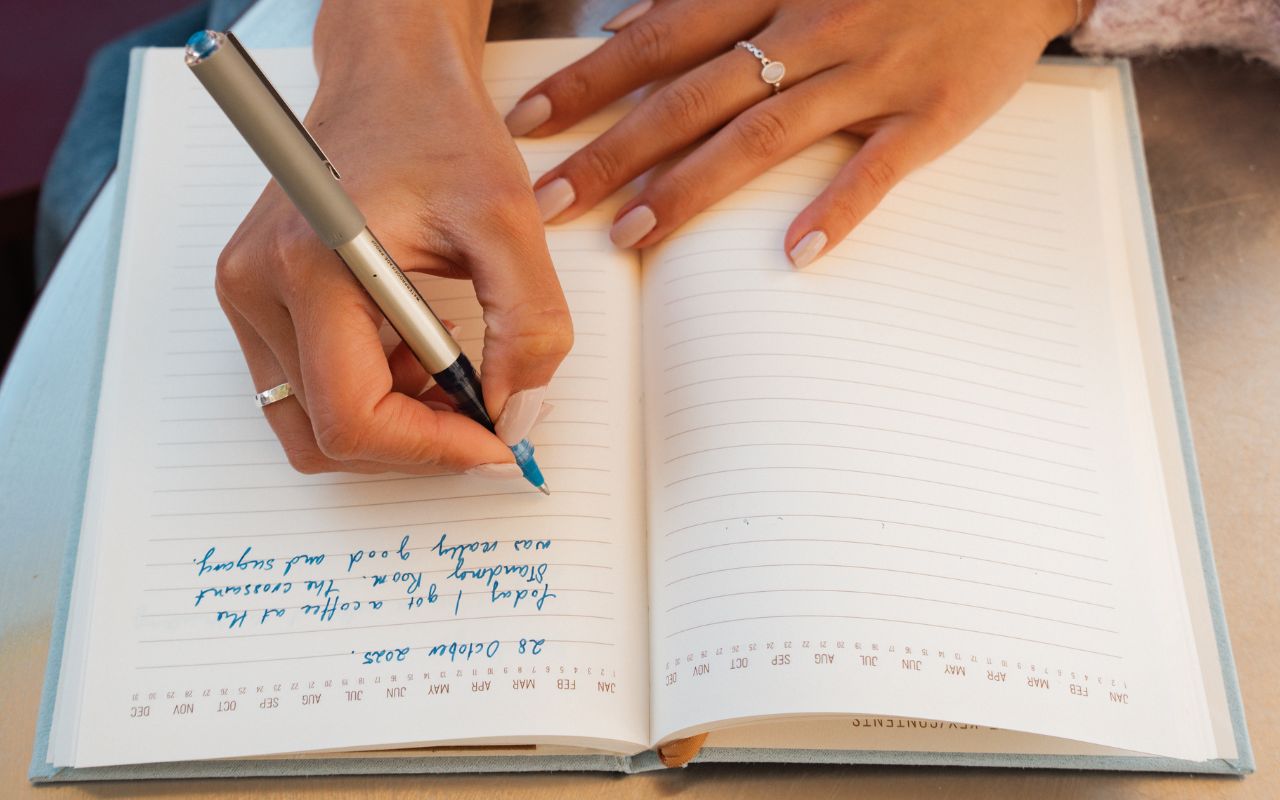 KEY/CONTENTS
JAN FEB MAR APR MAY JUN JUL AUG SEP OCT NOV DEC
1 2 3 4 5 6 7 8 9 10 11 12 13 14 15 16 17 18 19 20 21 22 23 24 25 26 27 28 29 30 3
JAN FEB MAR APR MAY JUN JUL AUG SEP OCT NOV DEC
1 2 3 4 5 6 7 8 9 10 11 12 13 14 15 16 17 18 19 20 21 22 23 24 25 26 27 28 29 30 31
28 October 2025.
Today, I got a coffee at the
Standing Room. The crossaint
was really good and sugary.